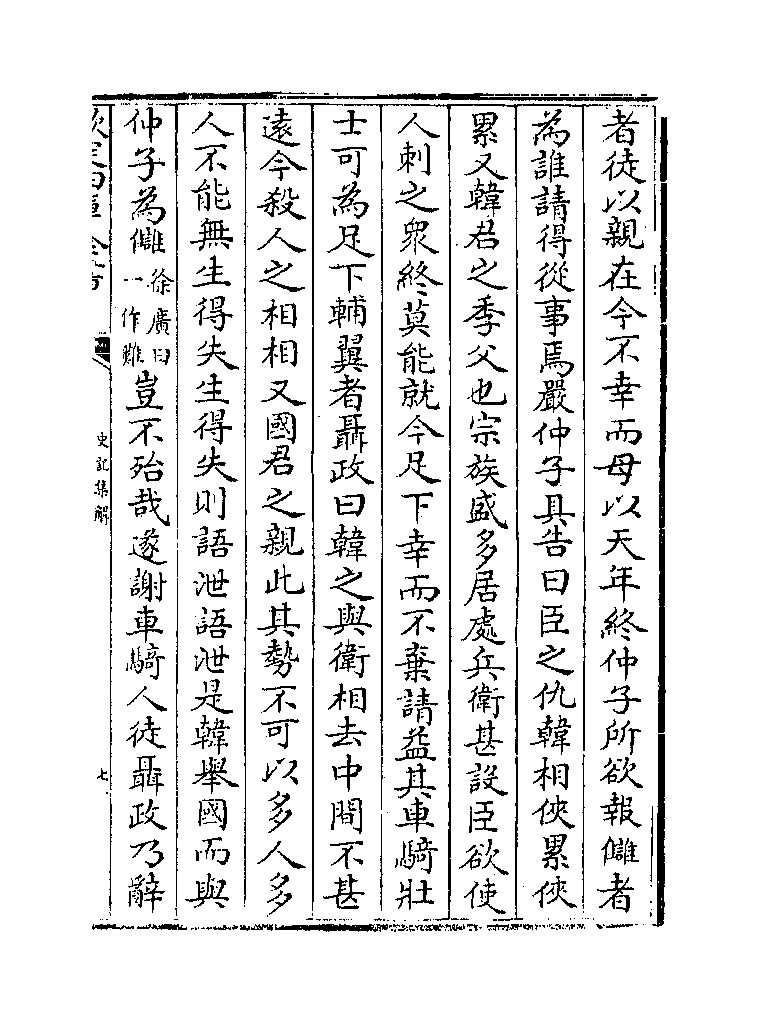 者徒以親在今不幸而母以天年終仲子所欲報讎者
為誰請得從事焉嚴仲子具告曰臣之仇韓相俠累俠
累又韓君之季父也宗族盛多居處兵衛甚設臣欲使
人刺之衆終莫能就今足下幸而不棄請益其車騎壯
士可為足下輔翼者聶政曰韓之與衛相去中閒不甚
遠今殺人之相相又國君之親此其勢不可以多人多
人不能無生得失生得失則語泄語泄是韓舉國而與
仲子為讎徐廣曰一作難豈不殆哉遂謝車騎人徒聶政乃辭
史記集解
七